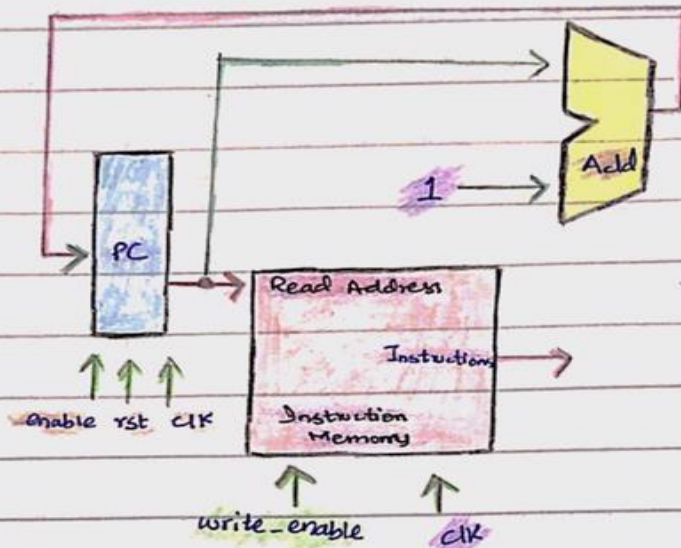 Add
1
PC
Read Address
Instructions
Instruction
Memory
enable rst clk
write_enable
clk